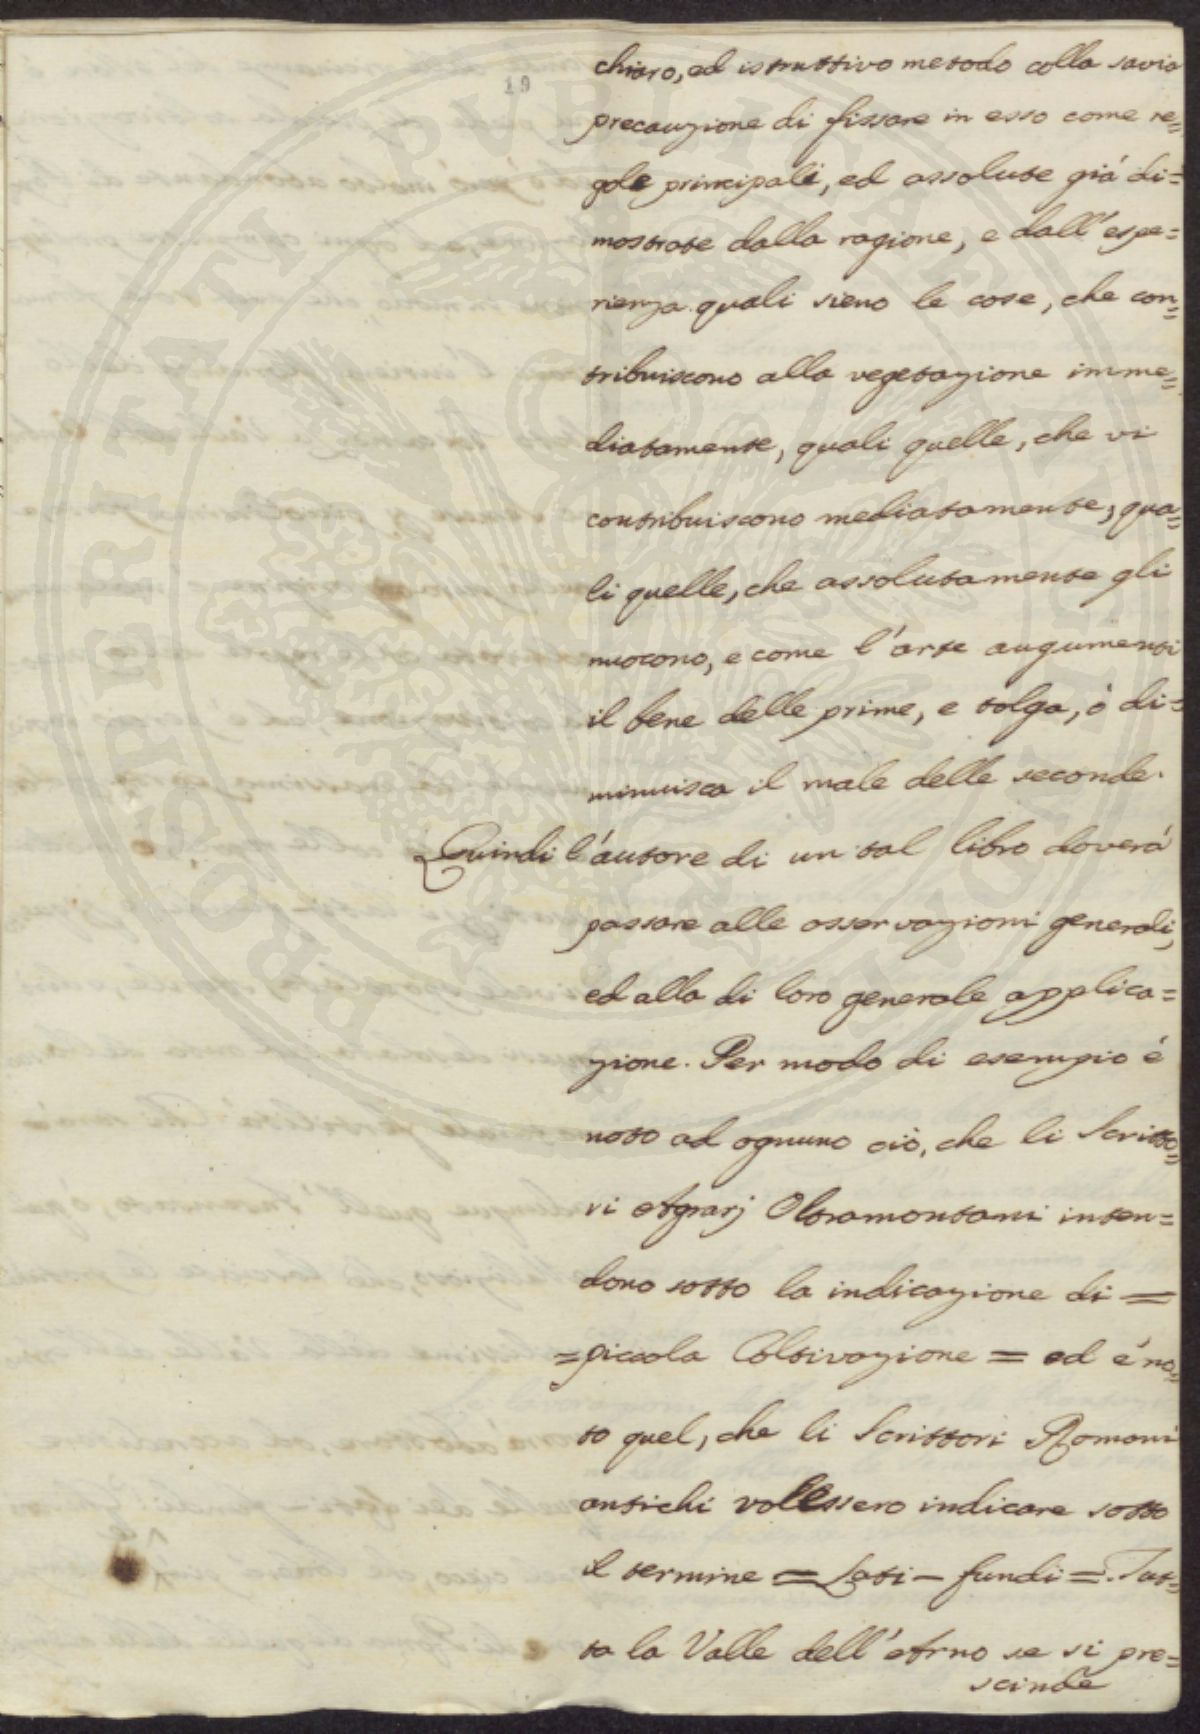 19
chiaro, ed istruttivo metodo colla savia
precauzione di fissare in esso come re=
gole principali, ed assolute già di=
mostrate dalla ragione, e dall'espe=
rienza quali sieno le cose, che con=
tribuiscono alla vegetazione imme=
diatamente, quali quelle, che vi
contribuiscono mediatamente, qua=
li quelle, che assolutamente gli
nuocono, e come l'arte augumenti
il bene delle prime, e tolga, ò di=
minuisca il male delle seconde.
Quindi l'autore di un tal libro doverà
passare alle osservazioni generali,
ed alla di loro generale applica=
zione. Per modo di esempio é
noto ad ognuno ciò, che li Scritto=
ri Agrarj Oltramontani inten=
dono sotto la indicazione di =
=piccola Coltivazione = ed é no=
to quel, che li Scrittori Romani
antichi volessero indicare sotto
il termine = Lati-fundi =. Tut=
ta la Valle dell'Arno se si pre=
scinde
PROSPERITATI PVBLICAE AVGENDAE